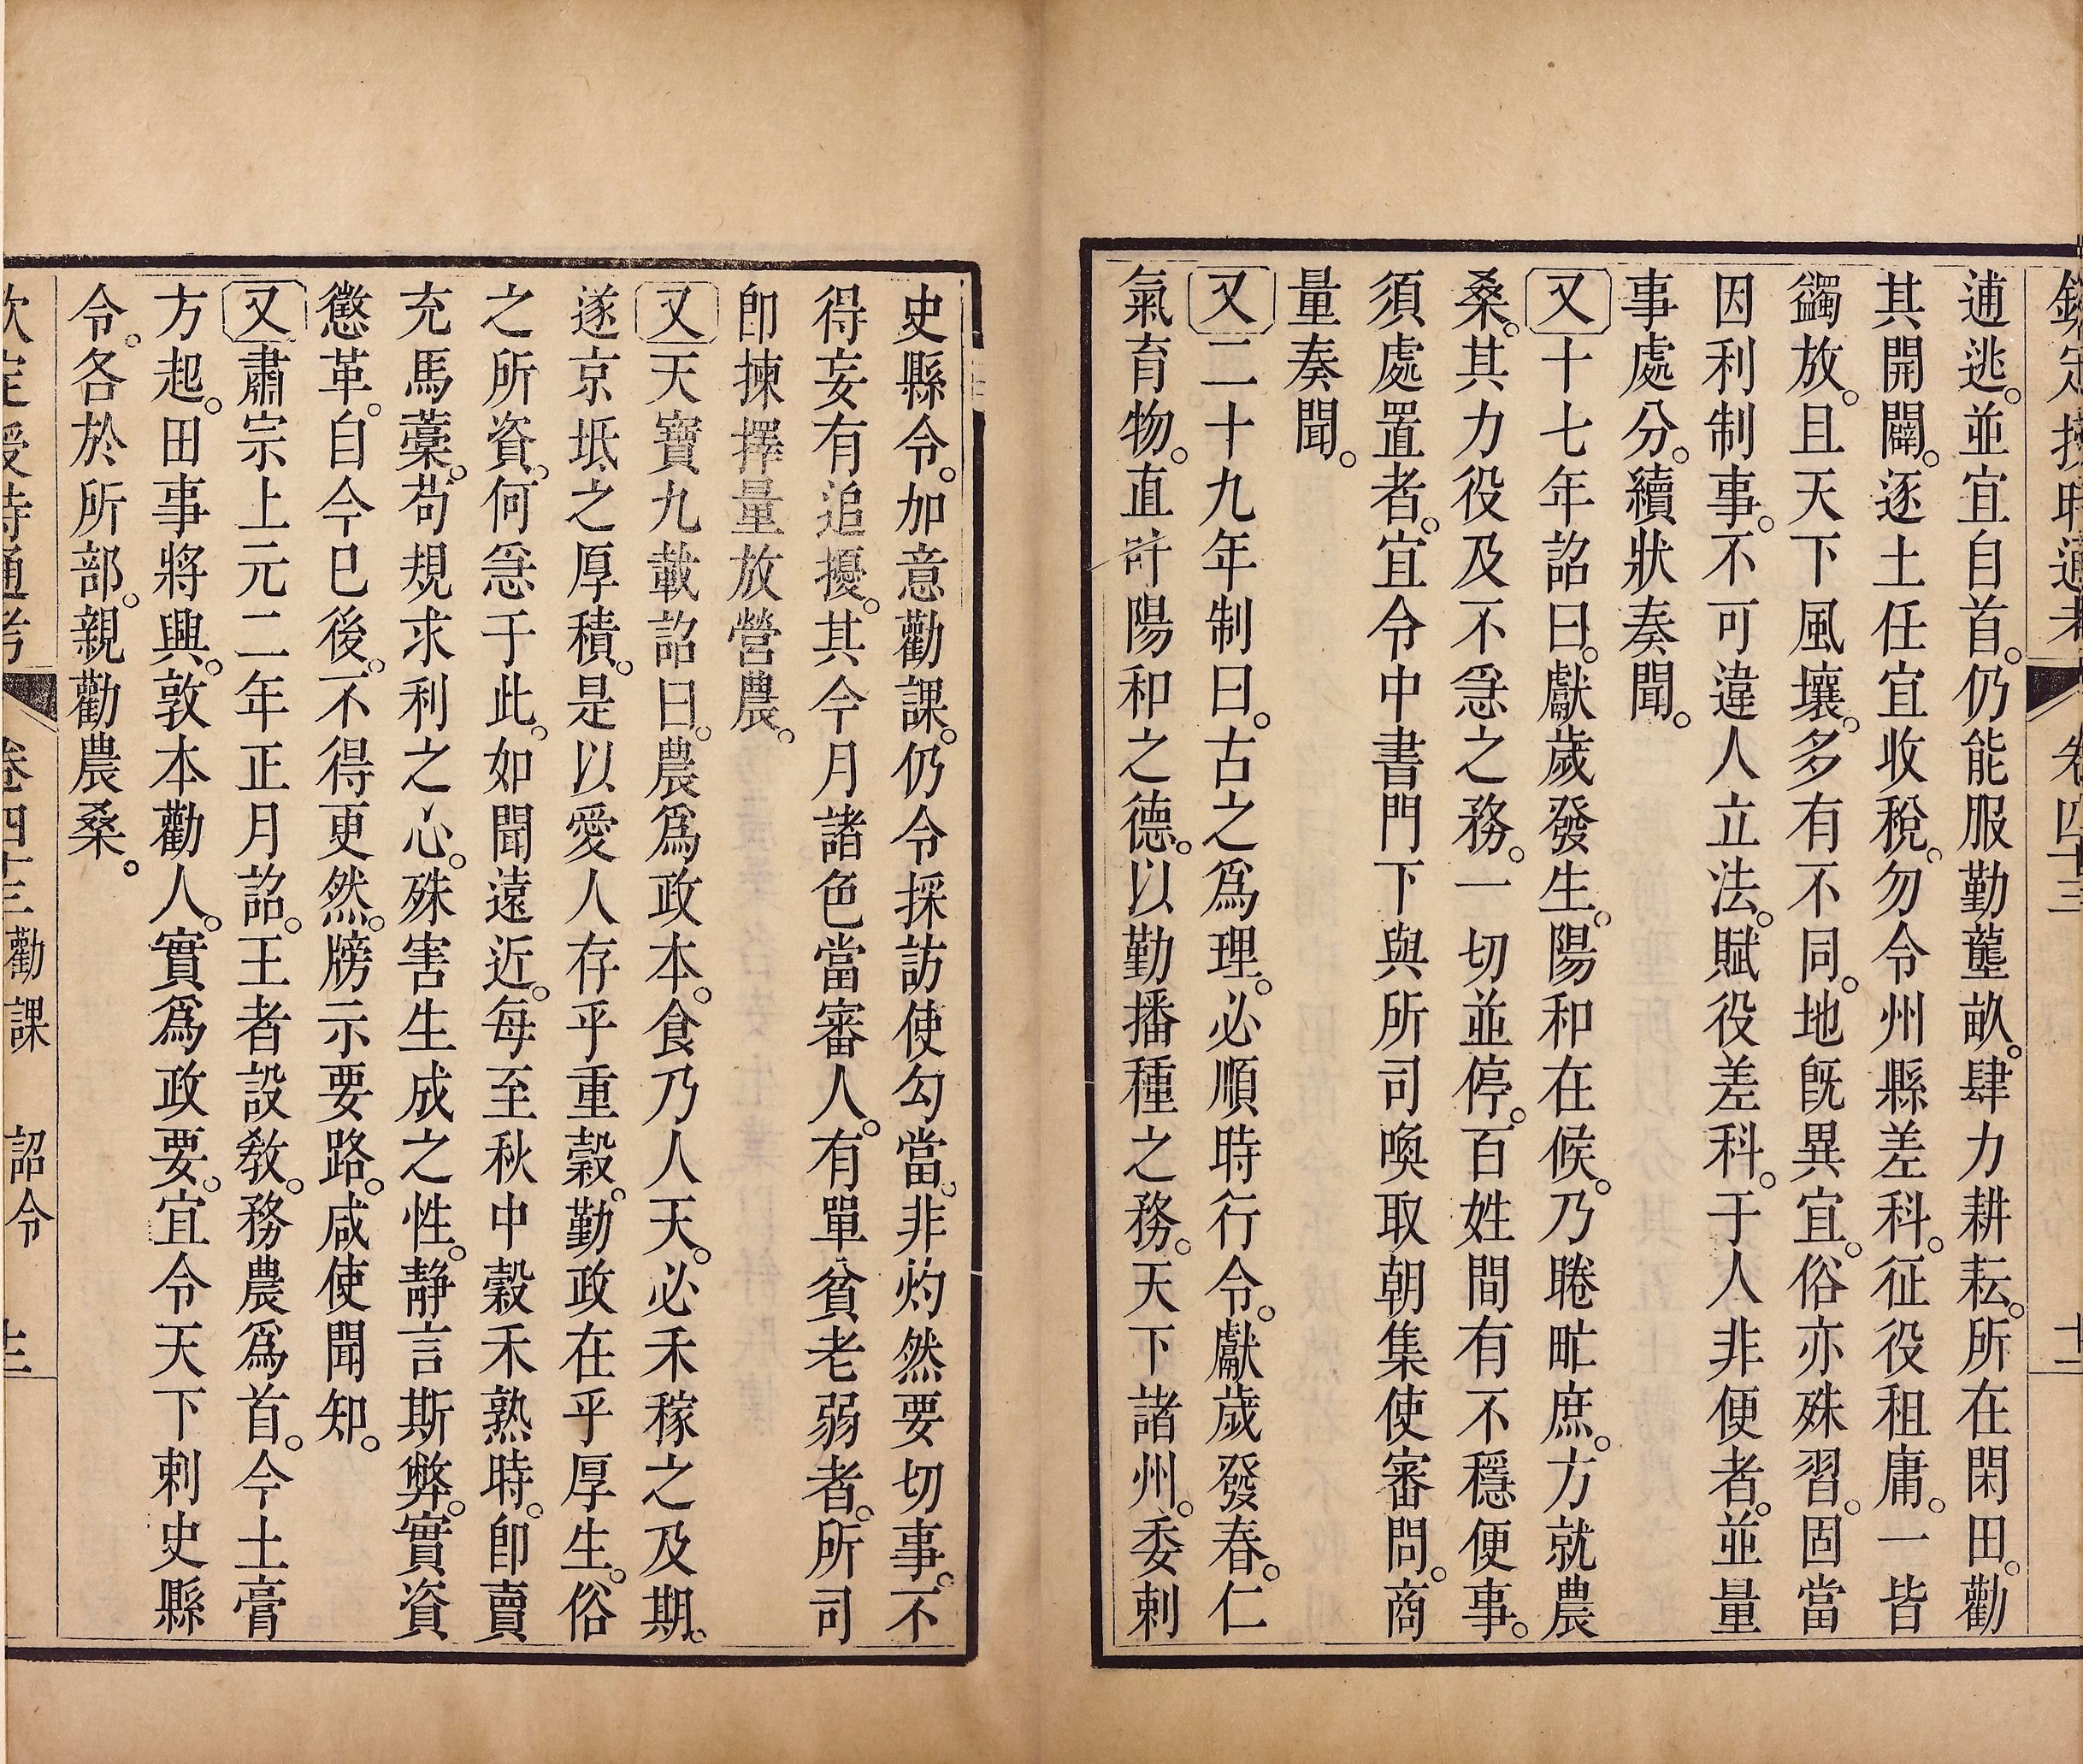 欽定授時通考 卷四十三 十二
逋逃。並宜自首。仍能服勤壟畝。肆力耕耘。所在閑田。勸
其開闢。逐土任宜收稅。勿令州縣差科。征役租庸。一皆
蠲放。且天下風壤。多有不同。地旣異宜。俗亦殊習。固當
因利制事。不可違人立法。賦役差科。于人非便者。並量
事處分。續狀奏聞。
又十七年詔曰。獻歲發生。陽和在候。乃睠甿庶。方就農
桑。其力役及不急之務。一切並停。百姓間有不穩便事。
須處置者。宜令中書門下與所司喚取朝集使審問。商
量奏聞。
又二十九年制曰。古之爲理。必順時行令。獻歲發春。仁
氣育物。直叶陽和之德。以勤播種之務。天下諸州。委刺
史縣令。加意勸課。仍令採訪使勾當。非灼然要切事。不
得妄有追擾。其今月諸色當審人。有單貧老弱者。所司
卽揀擇量放營農。
又天寶九載詔曰。農爲政本。食乃人天。必禾稼之及期。
遂京坻之厚積。是以愛人存乎重穀。勤政在乎厚生。俗
之所資。何急于此。如聞遠近。每至秋中穀禾熟時。卽賣
充馬藁。苟規求利之心。殊害生成之性。靜言斯弊。實資
懲革。自今巳後。不得更然。牓示要路。咸使聞知。
又肅宗上元二年正月詔。王者設敎。務農爲首。今土膏
方起。田事將興。敦本勸人。實爲政要。宜令天下刺史縣
令。各於所部。親勸農桑。
欽定授時通考 卷四十三勸課 詔令 十三